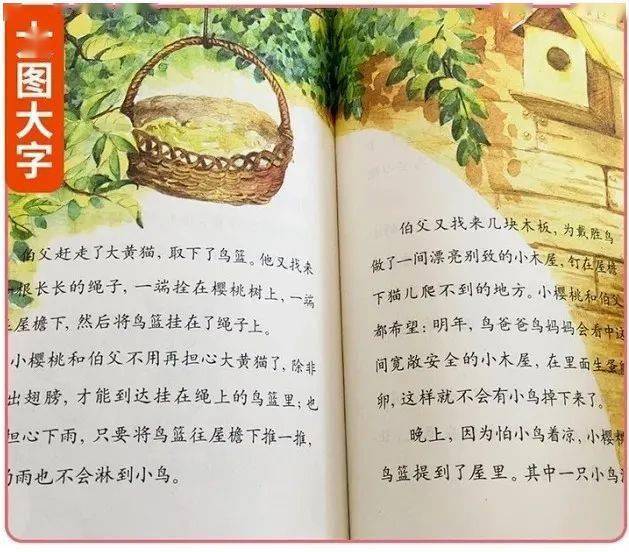 图大字
伯父赶走了大黄猫，取下了鸟篮。他又找来
根长长的绳子，一端拴在樱桃树上，一端
屋檐下，然后将鸟篮挂在了绳子上。
小樱桃和伯父不用再担心大黄猫了，除非
出翅膀，才能到达挂在绳上的鸟篮里；也
担心下雨，只要将鸟篮往屋檐下推一推，
雨也不会淋到小鸟。
伯父又找来几块木板，为戴胜鸟
做了一间漂亮别致的小木屋，钉在屋檐
下猫儿爬不到的地方。小樱桃和伯父
都希望：明年，鸟爸爸鸟妈妈会看中这
间宽敞安全的小木屋，在里面生蛋孵
卵，这样就不会有小鸟掉下来了。
晚上，因为怕小鸟着凉，小樱桃
鸟篮提到了屋里。其中一只小鸟